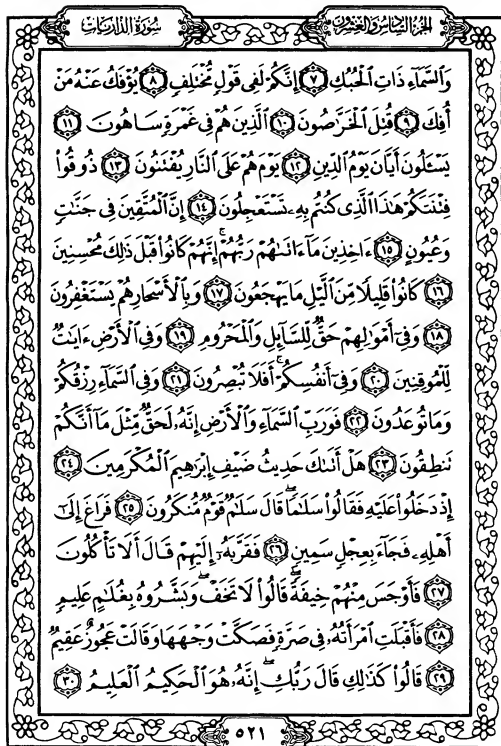 الجزء السادس والعشرون
سورة الذاريات
وَالسَّمَاءِ ذَاتِ الْحُبُكِ ٧ إِنَّكُمْ لَفِى قَوْلٍ مُّخْتَلِفٍ ٨ يُؤْفَكُ عَنْهُ مَنْ
أُفِكَ ٩ قُتِلَ الْخَرَّٰصُونَ ١٠ الَّذِينَ هُمْ فِى غَمْرَةٍ سَاهُونَ ١١
يَسْـَٔلُونَ أَيَّانَ يَوْمُ الدِّينِ ١٢ يَوْمَ هُمْ عَلَى النَّارِ يُفْتَنُونَ ١٣ ذُوقُوا۟
فِتْنَتَكُمْ هَٰذَا الَّذِى كُنتُم بِهِۦ تَسْتَعْجِلُونَ ١٤ إِنَّ الْمُتَّقِينَ فِى جَنَّٰتٍ
وَعُيُونٍ ١٥ ءَاخِذِينَ مَآ ءَاتَىٰهُمْ رَبُّهُمْ ۚ إِنَّهُمْ كَانُوا۟ قَبْلَ ذَٰلِكَ مُحْسِنِينَ
١٦ كَانُوا۟ قَلِيلًا مِّنَ الَّيْلِ مَا يَهْجَعُونَ ١٧ وَبِالْأَسْحَارِ هُمْ يَسْتَغْفِرُونَ
١٨ وَفِىٓ أَمْوَٰلِهِمْ حَقٌّ لِّلسَّآئِلِ وَالْمَحْرُومِ ١٩ وَفِى الْأَرْضِ ءَايَٰتٌ
لِّلْمُوقِنِينَ ٢٠ وَفِىٓ أَنفُسِكُمْ ۚ أَفَلَا تُبْصِرُونَ ٢١ وَفِى السَّمَآءِ رِزْقُكُمْ
وَمَا تُوعَدُونَ ٢٢ فَوَرَبِّ السَّمَآءِ وَالْأَرْضِ إِنَّهُۥ لَحَقٌّ مِّثْلَ مَآ أَنَّكُمْ
تَنطِقُونَ ٢٣ هَلْ أَتَىٰكَ حَدِيثُ ضَيْفِ إِبْرَٰهِيمَ الْمُكْرَمِينَ ٢٤
إِذْ دَخَلُوا۟ عَلَيْهِ فَقَالُوا۟ سَلَٰمًا ۖ قَالَ سَلَٰمٌ قَوْمٌ مُّنكَرُونَ ٢٥ فَرَاغَ إِلَىٰٓ
أَهْلِهِۦ فَجَآءَ بِعِجْلٍ سَمِينٍ ٢٦ فَقَرَّبَهُۥٓ إِلَيْهِمْ قَالَ أَلَا تَأْكُلُونَ
٢٧ فَأَوْجَسَ مِنْهُمْ خِيفَةً ۖ قَالُوا۟ لَا تَخَفْ ۖ وَبَشَّرُوهُ بِغُلَٰمٍ عَلِيمٍ
٢٨ فَأَقْبَلَتِ امْرَأَتُهُۥ فِى صَرَّةٍ فَصَكَّتْ وَجْهَهَا وَقَالَتْ عَجُوزٌ عَقِيمٌ
٢٩ قَالُوا۟ كَذَٰلِكِ قَالَ رَبُّكِ ۖ إِنَّهُۥ هُوَ الْحَكِيمُ الْعَلِيمُ ٣٠
٥٢١